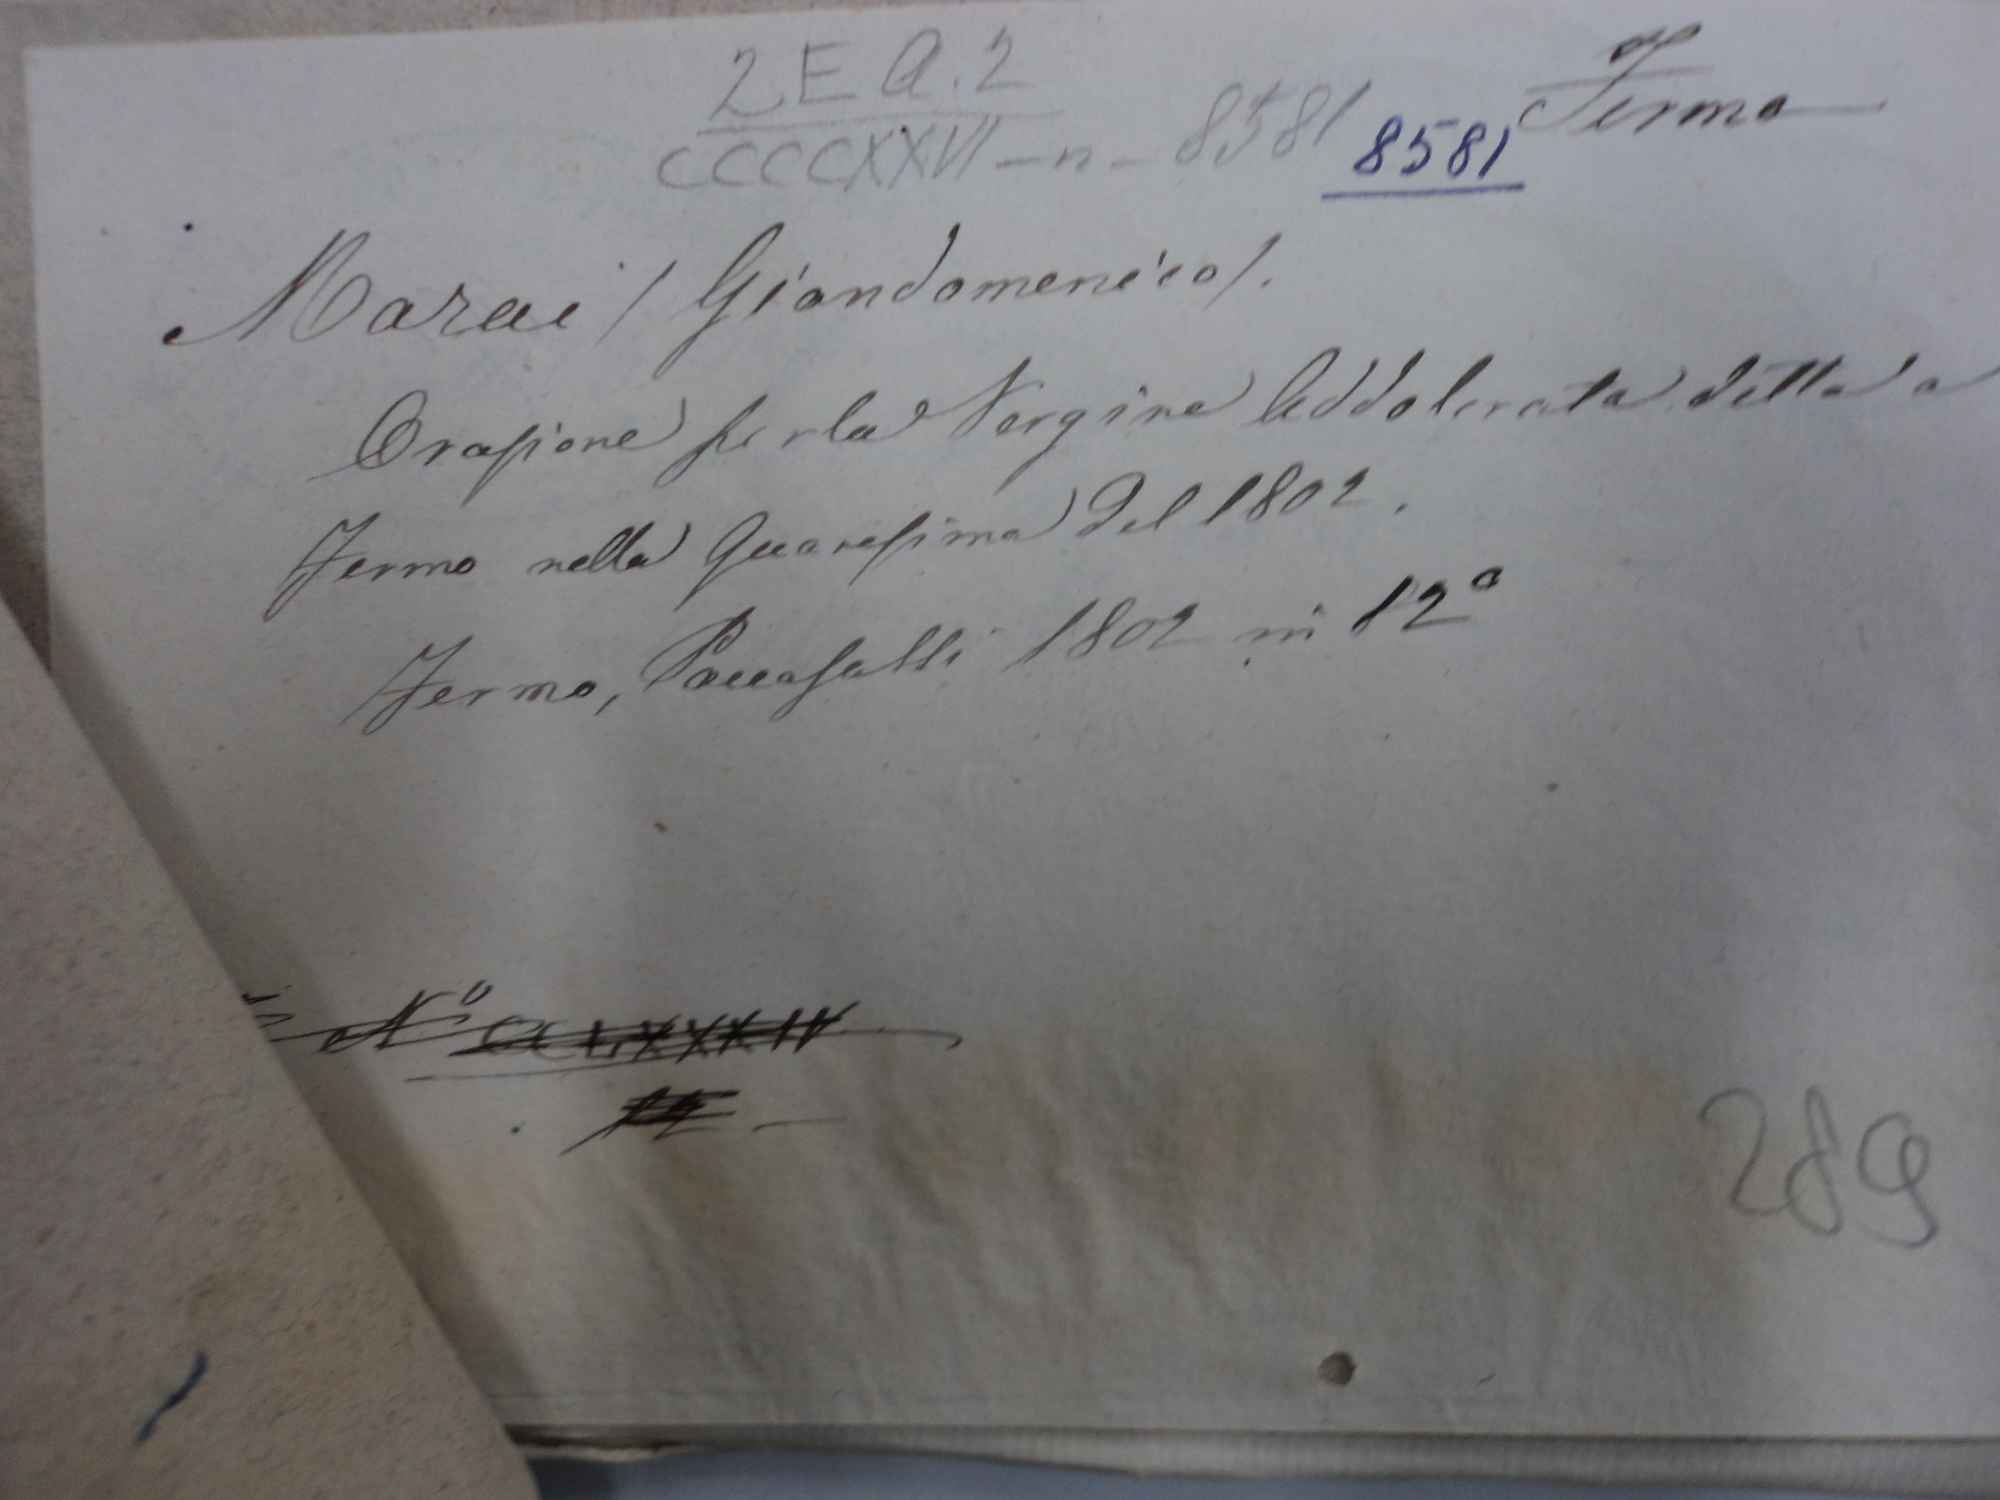 2 E Q. 2
CCCCXXVI - n - 8581 8581 Fermo
(Giandomenico).
Orazione per la Vergine Addolorata detta a
Fermo nella Quaresima del 1802.
Fermo, Paccasassi 1802 in 12º
Nº CCLXXXIV
289